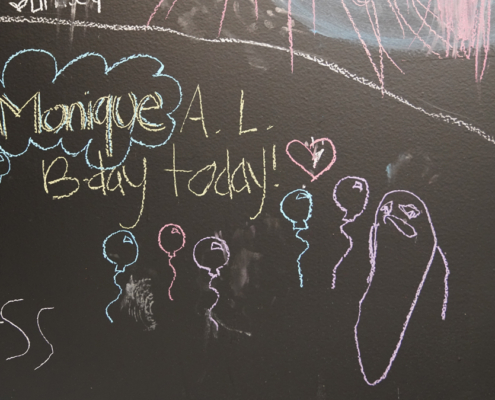 Monique A. L.
B-day today!